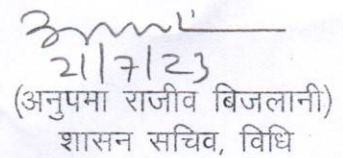 21/7/23
(अनुपमा राजीव बिजलानी)
शासन सचिव, विधि